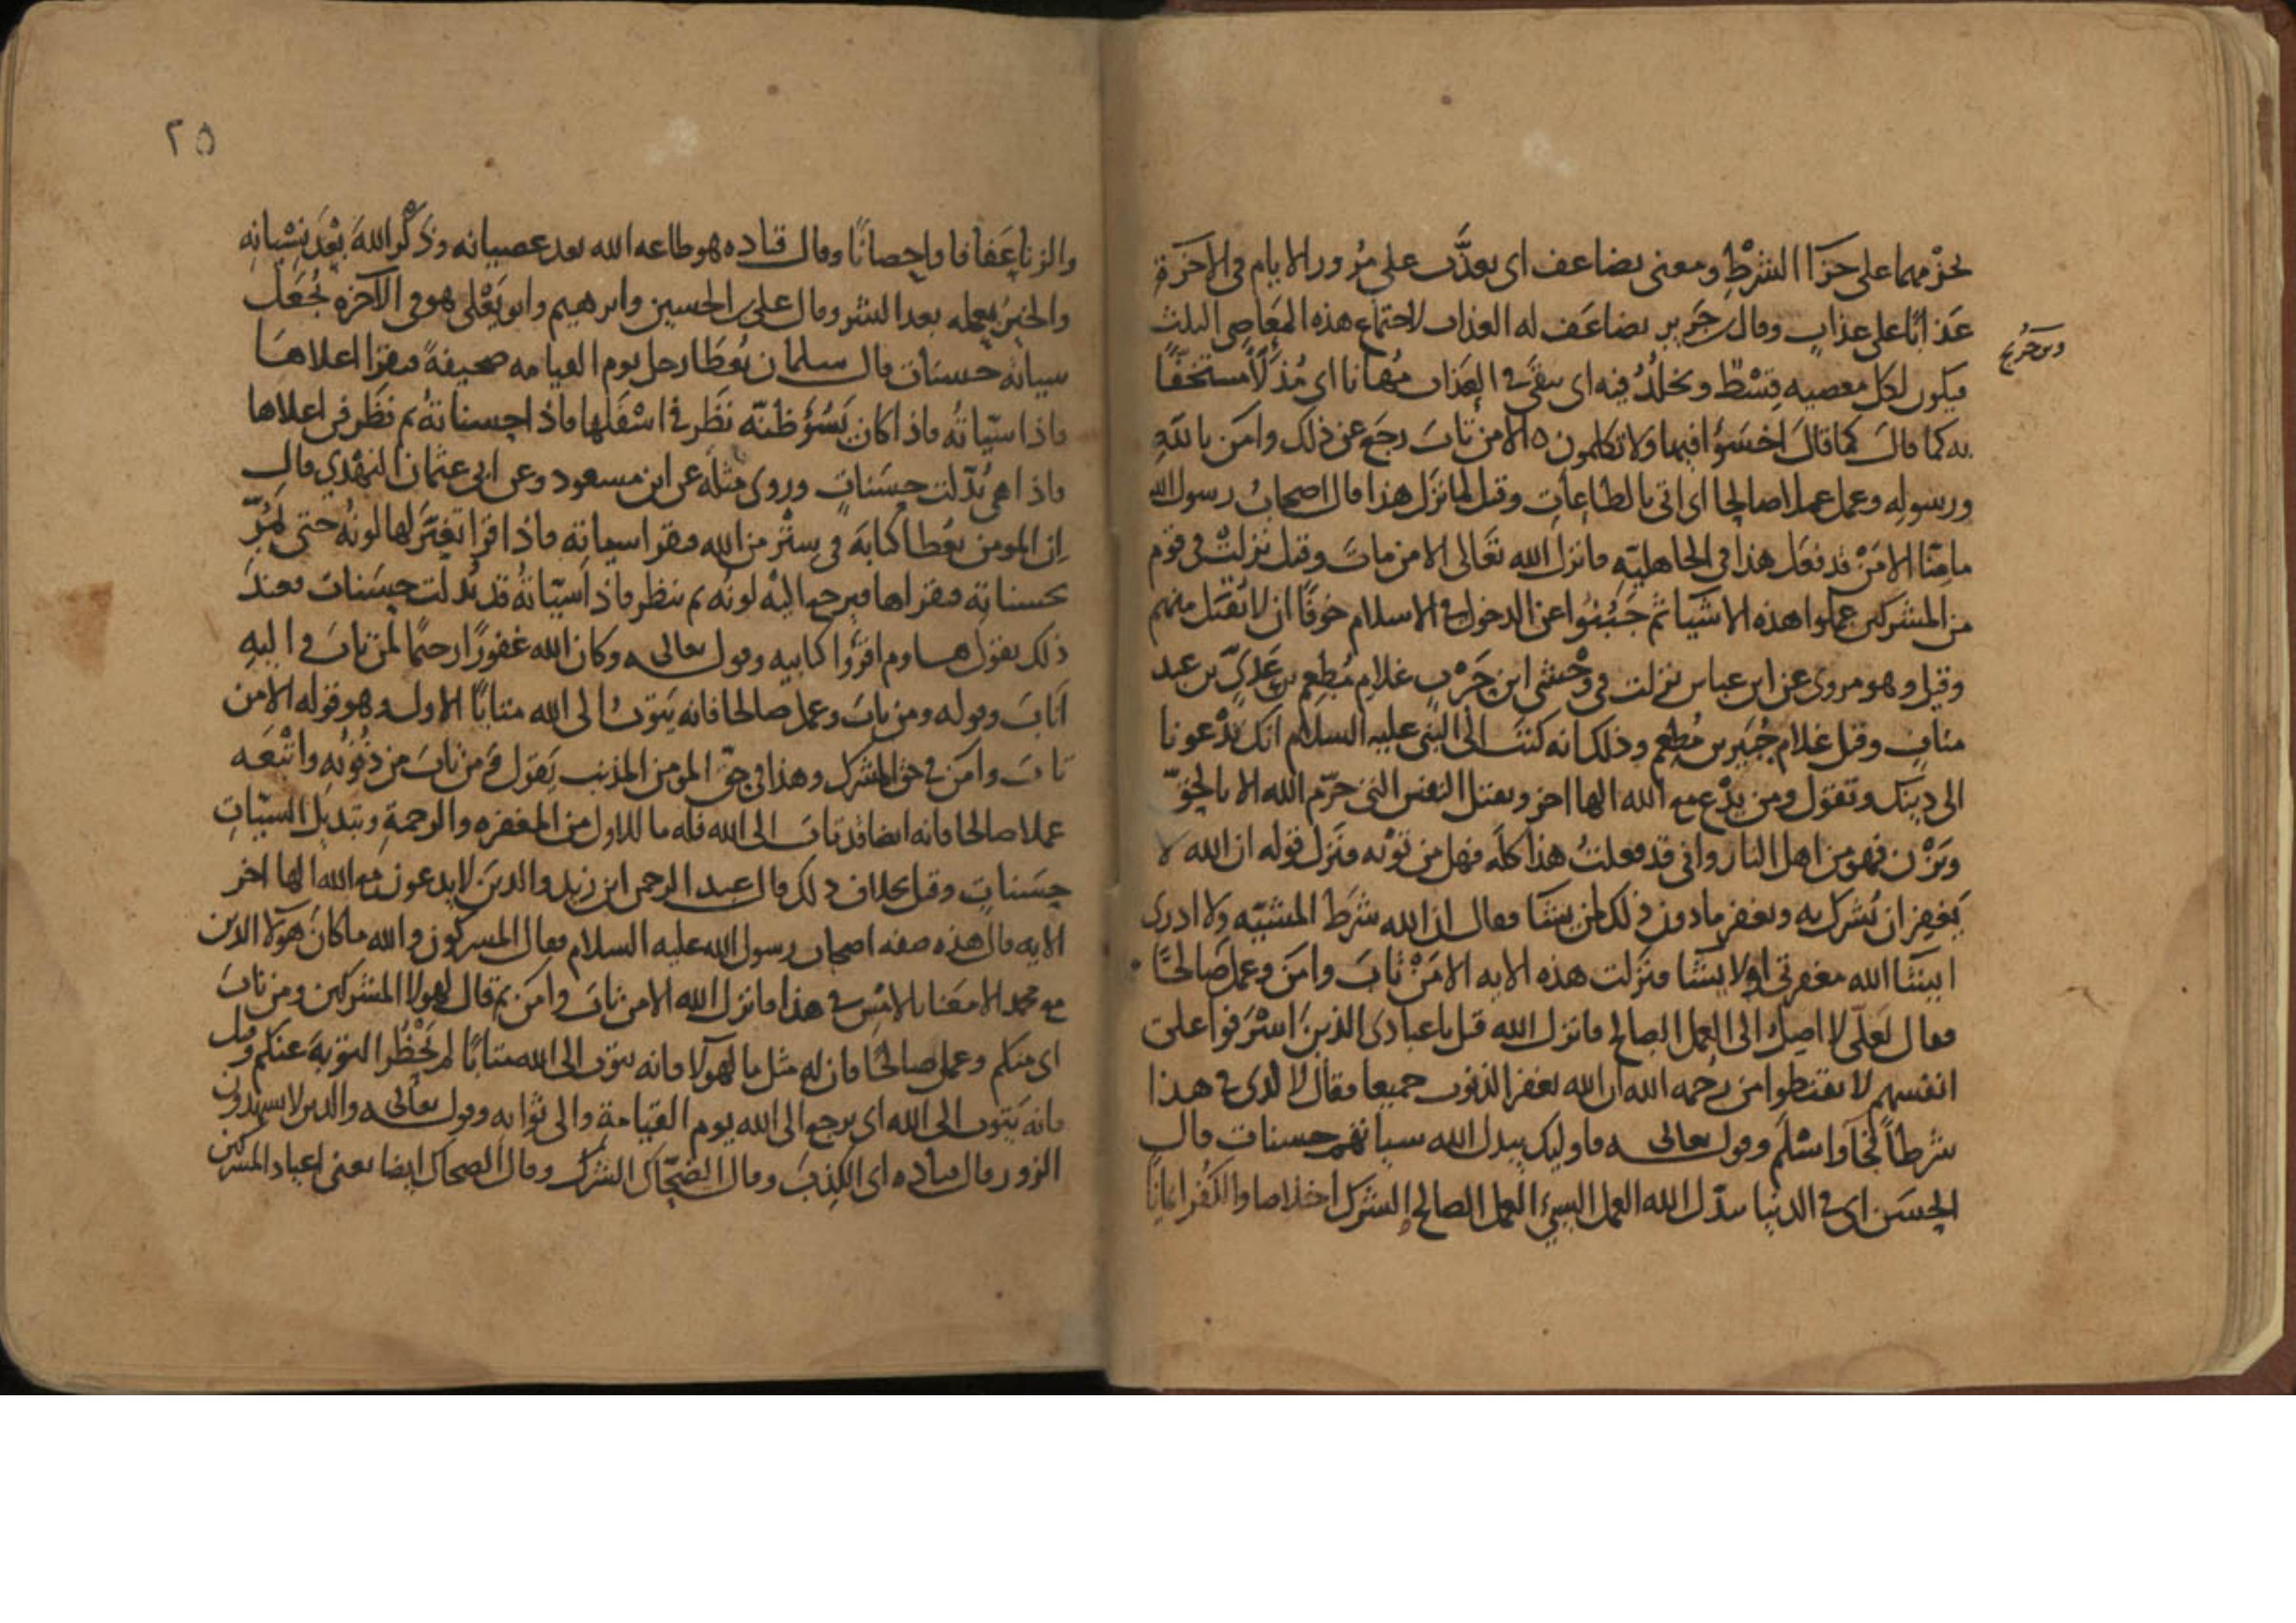 بجزمهما على جزا الشرط ومعنى يضاعف اى يعذب على مرور الايام فى الاخرة
عذابا على عذاب وقال جرير يضاعف له العذاب لاجتماع هذه المعاصى الثلث
وبن جريج
فيكون لكل معصيه قسط ويخلد فيه اى يبقى فى العذاب مهانا اى مذلا مستخفا
به كما قال كما قال اخسؤا فيها ولا تكلمون ه الا من تاب رجع عن ذلك وامن بالله
ورسوله وعمل عملا صالحا اى اتى بالطاعات وقيل لما نزل هذا قال اصحاب رسول الله
ما منا الا من قد فعل هذا فى الجاهلية فانزل الله تعالى الا من تاب وقيل نزلت فى قوم
من المشركين عملوا هذه الاشيا ثم جبنوا عن الدخول فى الاسلام خوفا ان لا تقبل منهم
وقيل وهو مروى عن ابن عباس نزلت فى وحشى ابن حرب غلام مطعم بن عدى بن عبد
مناف وقيل غلام جبير بن مطعم وذلك انه كتب الى النبى عليه السلام انك تدعونا
الى دينك وتقول ومن يدع مع الله الها اخر ويقتل النفس التى حرم الله الا بالحق
ويزن فهو من اهل النار وانى قد فعلت هذا كله فهل من توبه فنزل قوله ان الله لا
يغفر ان يشرك به ويغفر ما دون ذلك لمن يشا فقال ان الله شرط المشيه ولا ادرى
ايشا الله مغفرتى او لا يشا فنزلت هذه الايه الا من تاب وامن وعمل صالحا
فقال لعلى لا اصل الى العمل الصالح فانزل الله قل يا عبادى الذين اسرفوا على
انفسهم لا تقنطوا من رحمه الله ان الله يغفر الذنوب جميعا فقال لا ارى فى هذا
شرطا فجا واسلم وقول تعالى فاوليك يبدل الله سياتهم حسنات قال
الحسن اى فى الدنيا يبدل الله العمل السيئ العمل الصالح الشرك اخلاصا والكفر ايمانا
٢٥
والزنا عفافا واحصانا وقال قتاده هو طاعه الله بعد عصيانه وذكر الله بعد نسيانه
والخير يعمله بعد الشر وقال على بن الحسين وابرهيم وابو يعلى هو فى الآخره تجعل
سياته حسنات قال سلمان يعطا رجل يوم القيامه صحيفة فيقرا اعلاها
فاذا سياته فاذا كان يسؤ ظنه نظر فى اسفلها فاذا حسناته ثم نظر فى اعلاها
فاذا هى بدلت حسنات وروى مثله عن ابن مسعود وعن ابى عثمان النهدى قال
ان المومن يعطا كتابه فى ستر من الله فيقرا سياته فاذا قرا تغير لها لونه حتى يمر
بحسناته فيقراها فيرجع اليه لونه ثم ينظر فاذا سياته قد بدلت حسنات فعند
ذلك يقول هاوم اقرؤا كتابيه وقول تعالى وكان الله غفورا رحيما لمن تاب و اليه
اناب وقوله ومن تاب وعمل صالحا فانه يتوب الى الله متابا الاول وهو قوله الا من
تاب وامن فى حق المشرك وهذا فى حق المومن المذنب يقول ومن تاب من ذنوبه واتبعه
عملا صالحا فانه ايضا قد تاب الى الله فله ما للاول من المغفره والرحمة وتبديل السيات
حسنات وقيل بخلاف ذلك قال عبد الرحمن ابن زيد والذين لا يدعون مع الله الها اخر
الايه قال هذه صفه اصحاب رسول الله عليه السلام فقال المشركون والله ما كان هولا الذين
مع محمد الا معنا بالامس فى هذا فانزل الله الا من تاب وامن ثم قال لهولا المشركين ومن تاب
اى منكم وعمل صالحا فان له مثل ما لهولا فانه يتوب الى الله متابا لم تحظر التوبة عنكم وقيل
فانه يتوب الى الله اى يرجع الى الله يوم القيامة والى ثوابه وقول تعالى والذين لا يشهدون
الزور قال قتاده اى الكذب وقال الضحاك الشرك وقال الضحاك ايضا يعنى اعياد المشركين